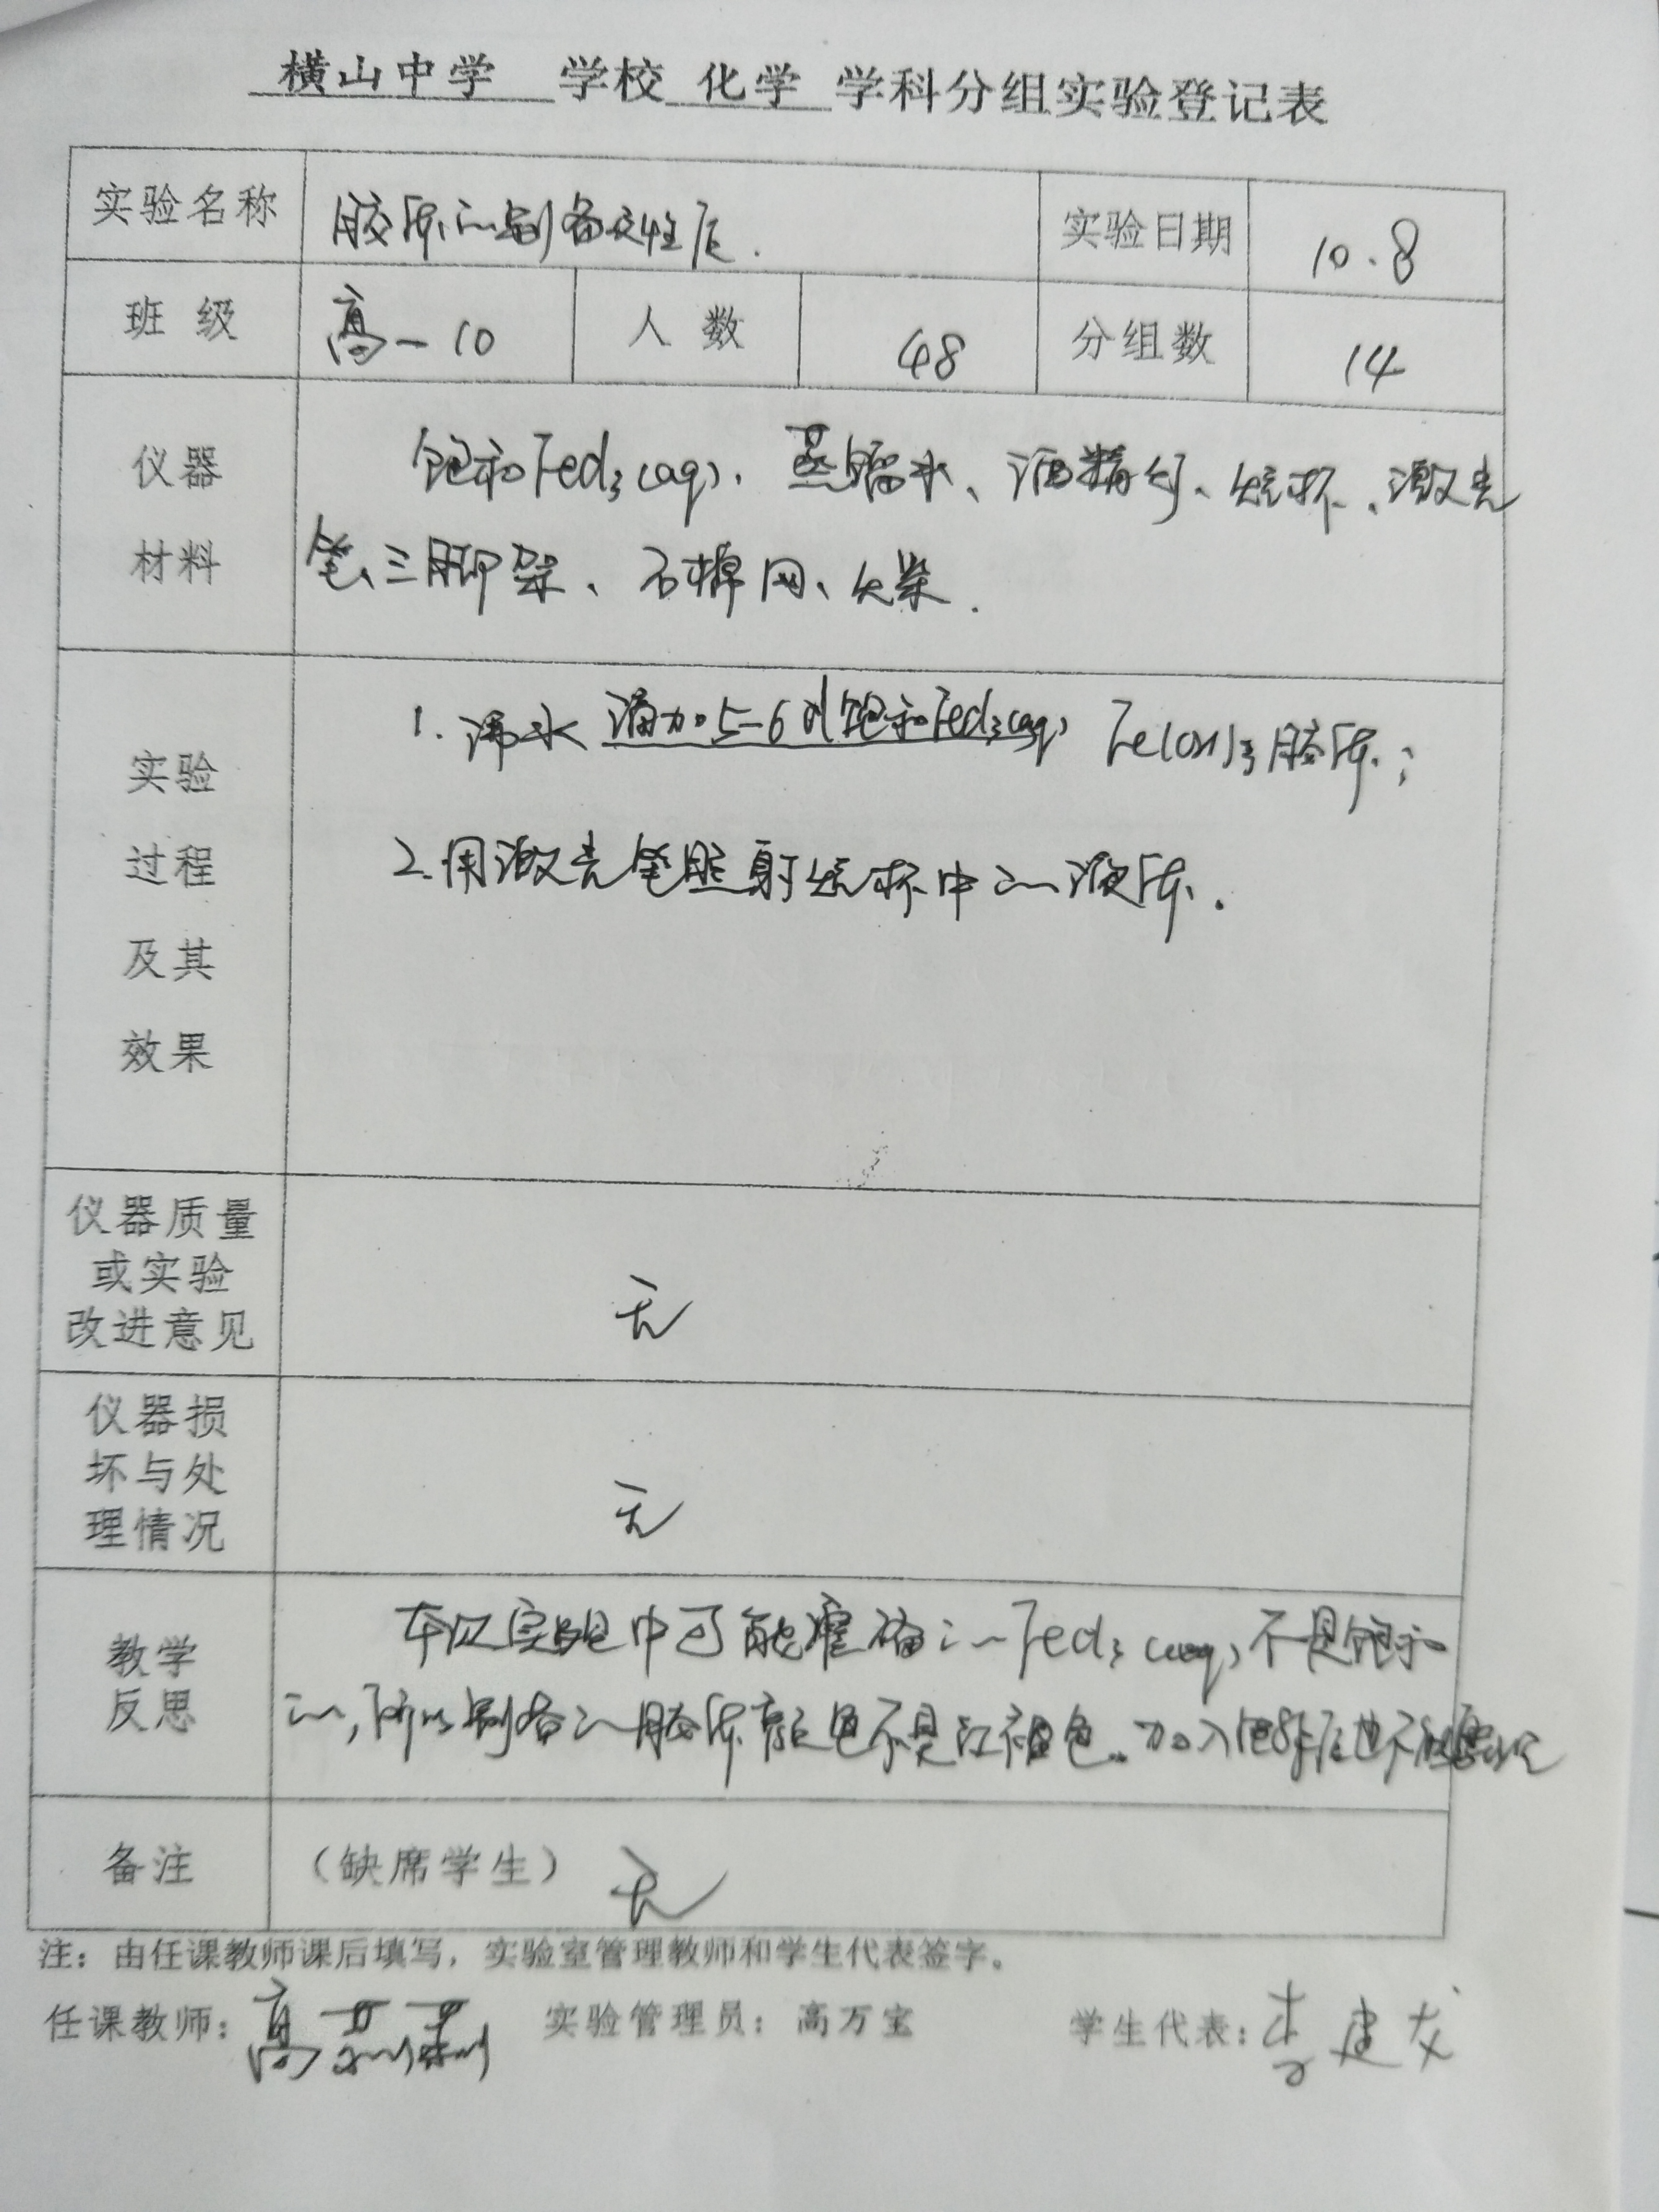 横山中学 学校 化学 学科分组实验登记表
实验名称 胶体的制备及性质. 实验日期 10.8
班级 高一10 人数 48 分组数 14
仪器 饱和FeCl3(aq)、蒸馏水、酒精灯、烧杯、激光
材料 笔、三脚架、石棉网、火柴.
1.沸水 滴加5-6d饱和FeCl3(aq) Fe(OH)3胶体;
实验
2.用激光笔照射烧杯中的液体.
过程
及其
效果
仪器质量
或实验 无
改进意见
仪器损
坏与处 无
理情况
教学 本次实验中可能准备的FeCl3(aq)不是饱和
反思 的,所以制备的胶体颜色不是红褐色。加入
备注 (缺席学生) 无
注：由任课教师课后填写，实验室管理教师和学生代表签字。
任课教师：高 实验管理员：高万宝 学生代表：李建龙